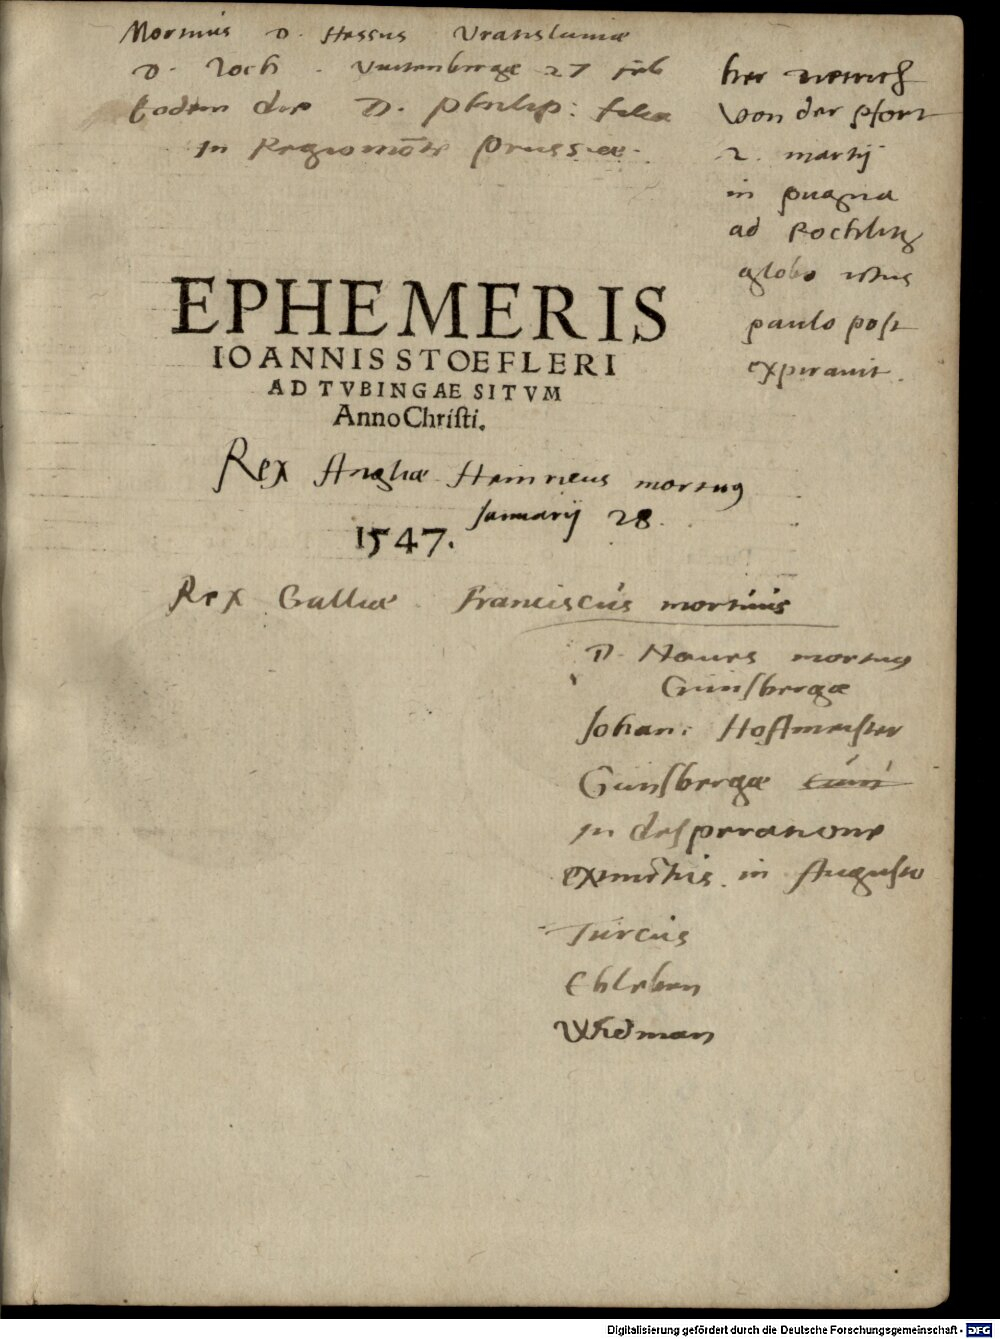 Mortuus D. Hessus Vratislauiae
D. Zoch. Vuittenbergae 27 feb
Eodem die D. Philip: filia
In Regiomōte Prussiae.
her
von der pfort
2. martij
in pugna
ad Rochlitz
globo ictus
paulo post
expirauit.
EPHEMERIS
IOANNIS STOEFLERI
AD TVBINGAE SITVM
Anno Christi.
Rex Angliae Heinricus mortuus
Januarij 28.
1547.
Rex Galliae Franciscus mortuus
D. Naues mortuus
Guntzbergae
Johan: Hoffmeister
Guntzbergae
in desperatione
extinctus in Augusto
Turcus
Ebleben
Widman
Digitalisierung gefördert durch die Deutsche Forschungsgemeinschaft - DFG